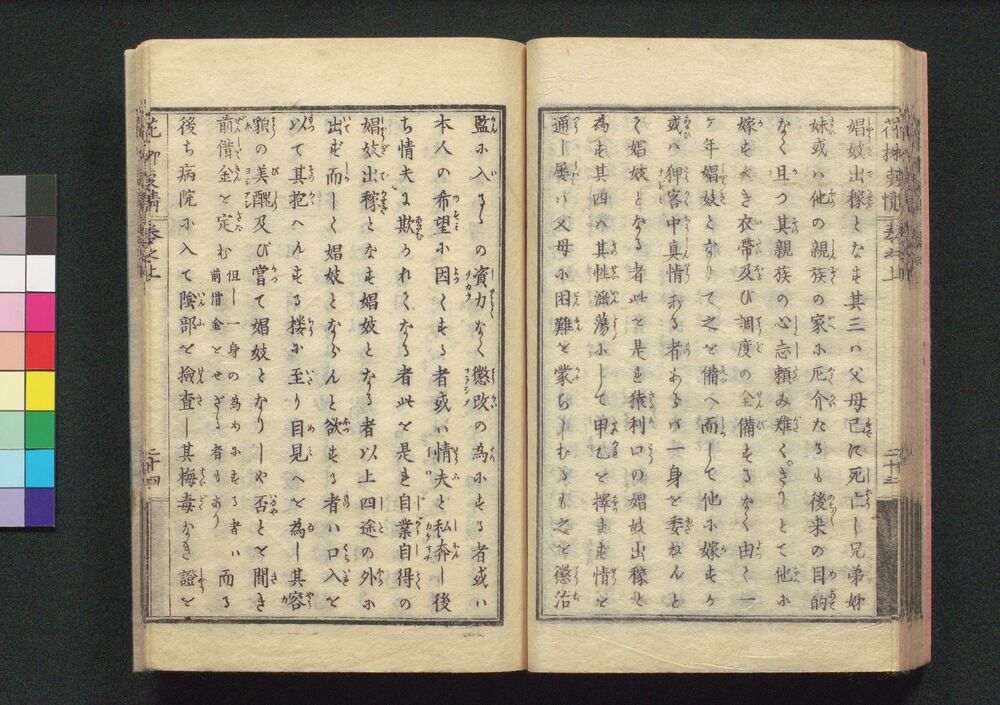 花柳
巻之上
二十三
娼妓出稼となす其三ハ父母已に死亡し兄弟姉
妹或ハ他の親族の家に厄介たるも後来の目的
なく且つ其親族の心志頼み難くさりとて他に
嫁すべき衣帯及び調度の全備するなく由て一
ヶ年娼妓となりて之を備へ而して他に嫁すか
或ハ狎客中真情ある者あらバ一身を委ねんと
て娼妓となる者此を是を猿利口の娼妓出稼と
為す其四ハ其性淫蕩にして甲乙を擇まず情を
通し屡バ父母に困難を蒙らしむるも之を懲治
監に入るゝの資力なく懲改の為にする者或ハ
本人の希望に因てする者或ハ情夫と私奔し後
ち情夫に欺かれてなる者此を是を自業自得の
娼妓出稼となす娼妓となる者以上四途の外に
出ず而して娼妓とならんと欲する者ハ口入を
以て其抱へんする楼に至り目見へを為し其容
貌の美醜及び嘗て娼妓となりしや否とを聞き
前借金を定む 但し一身の為めにする者ハ前借金をせざる者もあり 而る
後ち病院に入て陰部を検査し其梅毒なき證を
花柳
巻之上
二十四